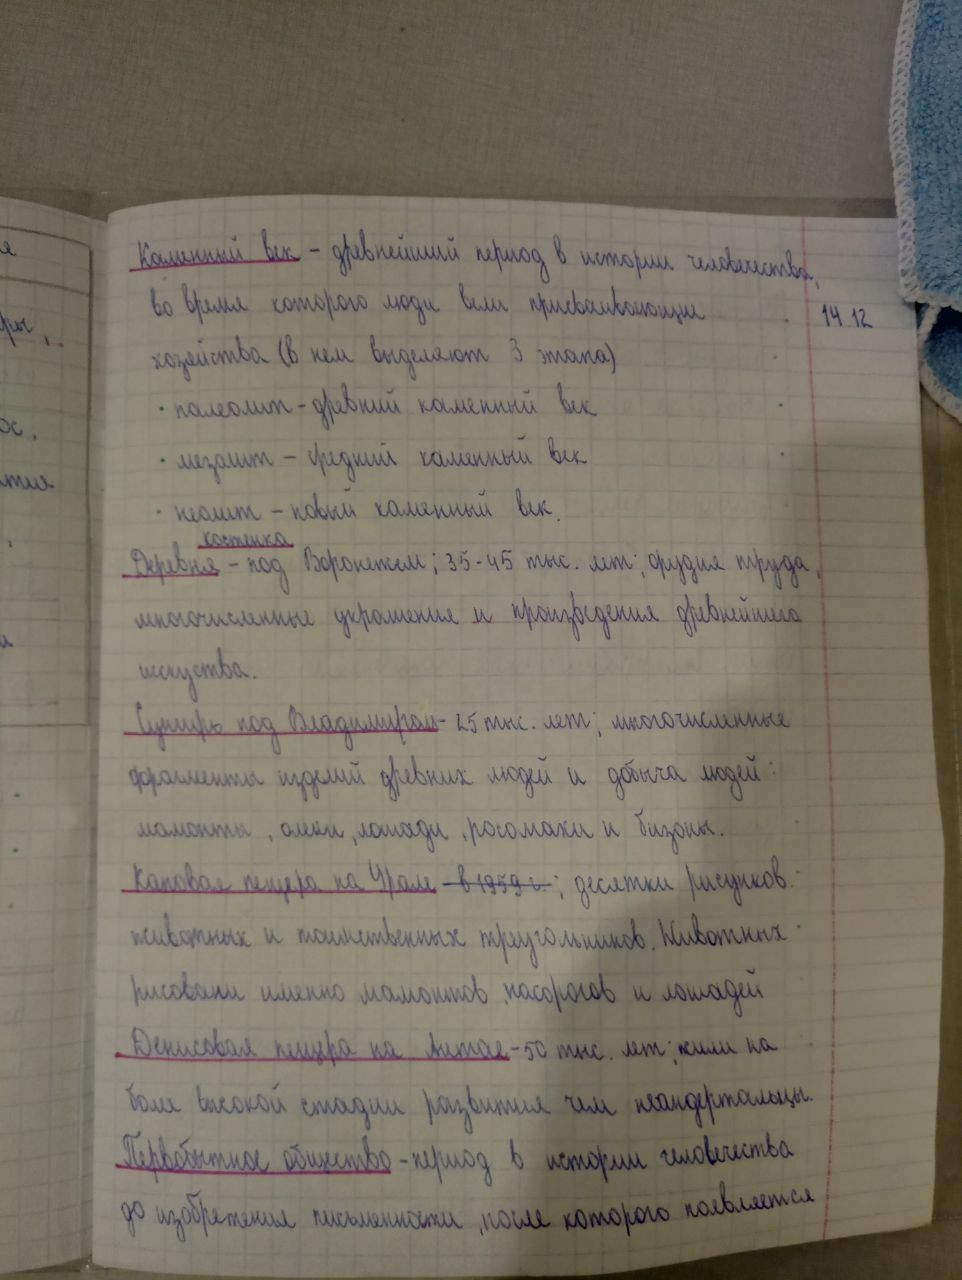 Каменный век – древнейший период в истории человечества,
во время которого люди вели присваивающие
14.12
хозяйства (в нем выделяют 3 этапа)
· палеолит – древний каменный век
· мезолит – средний каменный век
· неолит – новый каменный век.
костенка
Деревня – под Воронежем; 35-45 тыс. лет; орудия труда,
многочисленные украшения и произведения древнейшего
искуства.
Сунгирь под Владимиром – 25 тыс. лет; многочисленные
фрагменты изделий древних людей и добыча людей:
мамонты, олени, лошади, росомахи и бизоны.
Каповая пещера на Урале – в 1959 г.; десятки рисунков
животных и таинственных треугольников. Животных
рисовали именно мамонтов, насорогов и лошадей
Денисовая пещера на Алтае – 50 тыс. лет; жили на
боле высокой стадии развития чем неандертальцы.
Первобытное общество – период в истории человечества
до изобретения письменности, после которого появляется